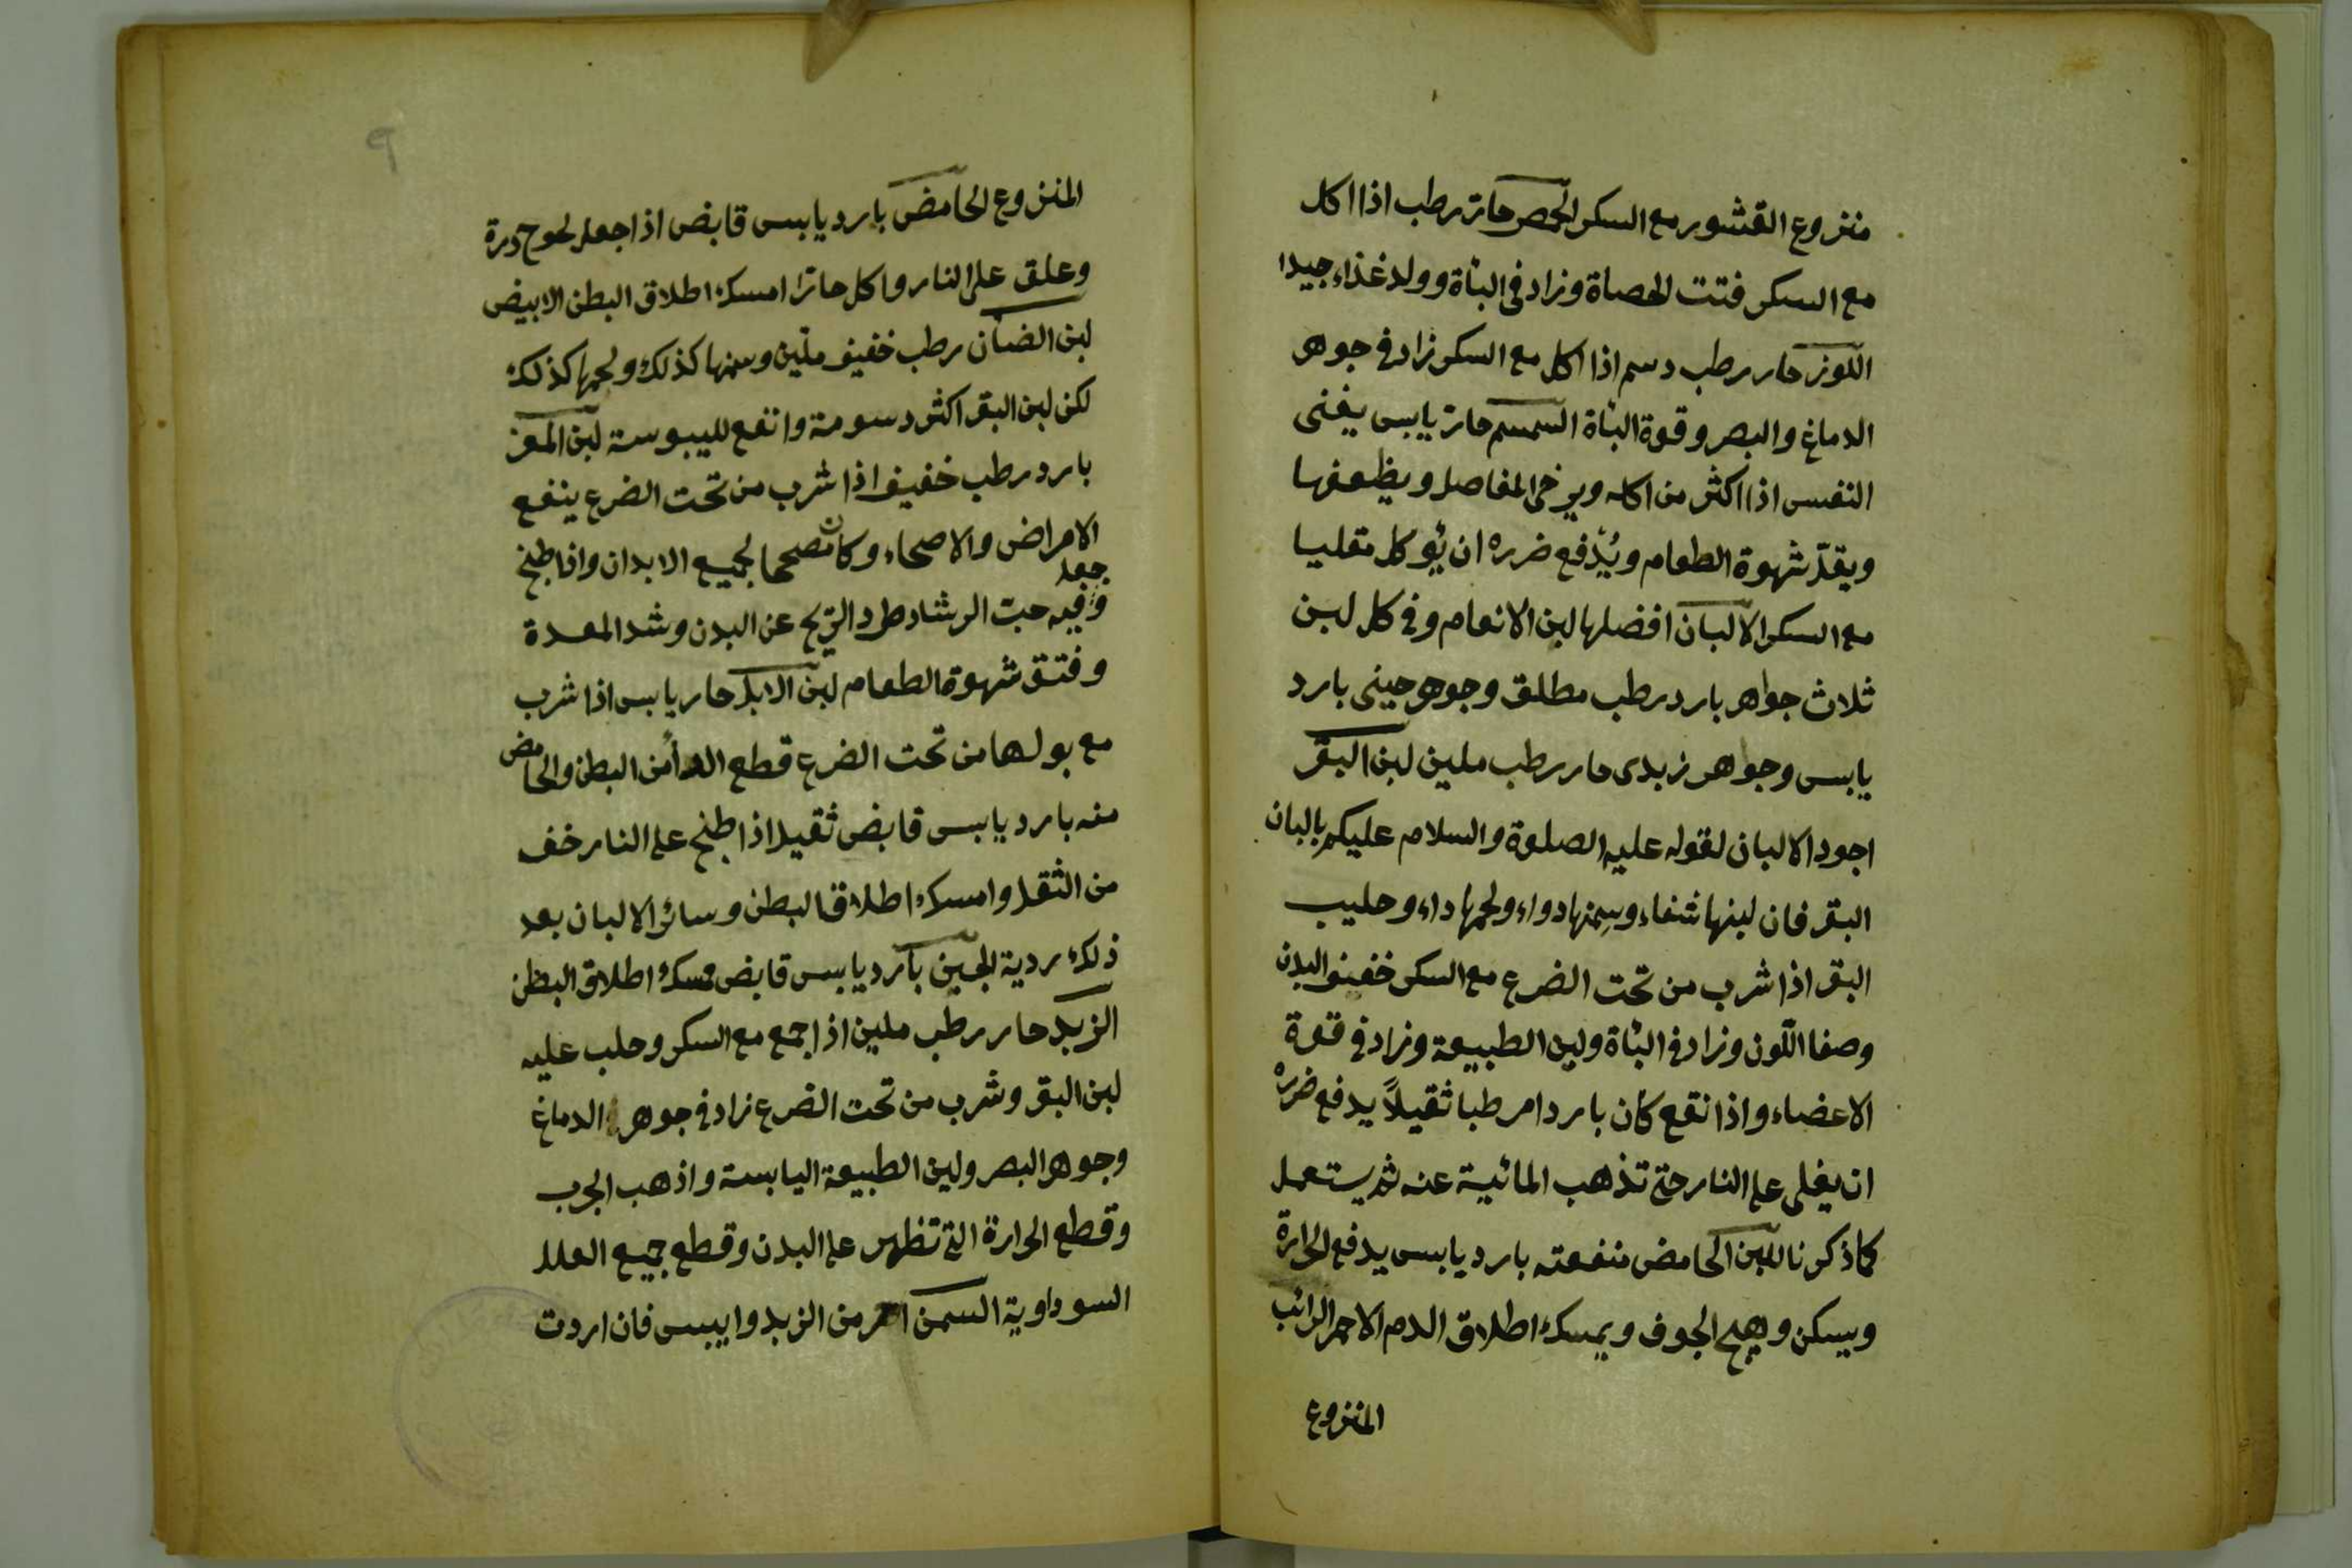 منزوع القشور مع السكر الحمص حار رطب اذا اكل
مع السكر فتت الحصاة وزاد فى الباة وولد غذاء جيدا
اللوز حار رطب دسم اذا اكل مع السكر زاد فى جوهر
الدماغ والبصر وقوة الباة السمسم حار يابس يغثى
النفس اذا اكثر من اكله ويرخى المفاصل ويظعفها
ويقلّ شهوة الطعام ويُدْفع ضرره ان يُوكل مقليا
مع السكر الالبان افضلها لبن الانعام وفى كل لبن
ثلاث جواهر بارد رطب مطلق وجوهر جبنى بارد
يابس وجواهر زبدى حار رطب ملين لبن البقر
اجود الالبان لقوله عليه الصلوة والسلام عليكم بالبان
البقر فان لبنها شفاء وسمنها دواء ولحمها داء وحليب
البقر اذا شرب من تحت الضرع مع السكر خفيف البدن
وصفا اللّون وزاد فى الباة ولين الطبيعة وزاد فى قوة
الاعضاء واذا نقع كان باردا مرطبا ثقيلاً يدفع ضرره
ان يغلى على النار حتى تذهب المائية عنه ثم يستعمل
كما ذكرنا اللبن الحامض منفعته بارد يابس يدفع الحرارة
ويسكن وهيج الجوف ويمسك اطلاق الدم الاحمر الرائب
المنزوع
٩
المنزوع الحامض بارد يابس قابض اذا جعل لحوح ذرة
وعلق على النار واكل حارّا امسك اطلاق البطن الابيض
لبن الضان رطب خفيف ملين وسمنها كذلك ولحمها كذلك
لكن لبن البقر اكثر دسومة وانفع لليبوسة لبن المعز
بارد رطب خفيف اذا شرب من تحت الضرع ينفع
الامراض والاصحاء وكان مصححا لجميع الابدان واذا طبخ
جعل
وفيه حبّ الرشاد طرد الريح عن البدن وشد المعدة
وفتق شهوة الطعام لبن الابل حار يابس اذا شرب
مع بولها من تحت الضرع قطع الدأ من البطن والحامض
منه بارد يابس قابض ثقيل اذا طبخ على النار خف
من الثقل وامسك اطلاق البطن وسائر الالبان بعد
ذلك ردية الجبن بارد يابس قابض مسك اطلاق البطن
الزبد حار رطب ملين اذا جمع مع السكر وحلب عليه
لبن البقر وشرب من تحت الضرع زاد فى جوهر الدماغ
وجوهر البصر ولين الطبيعة اليابسة واذهب الجرب
وقطع الحرارة التى تظهر على البدن وقطع جميع العلل
السوداوية السمن احر من الزبد وايبس فان اردت